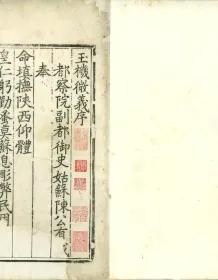 玉機微義序
都察院副都御史姑蘇陳公有
奉
命填撫陝西仰體
皇仁躬勤蚤莫蘇息彫弊民用